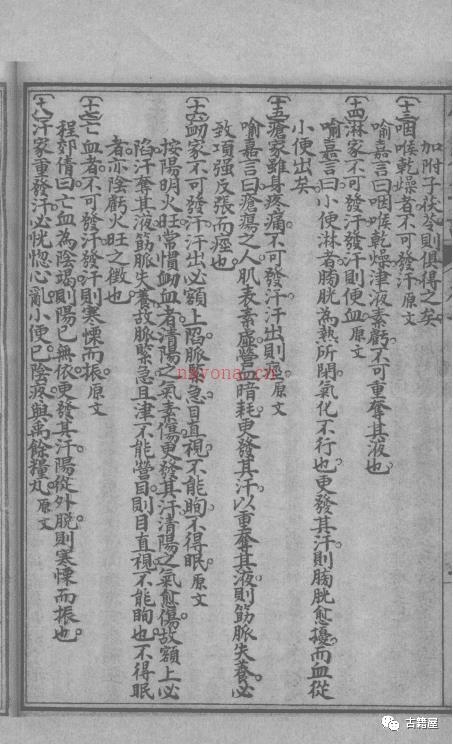 加附子茯苓則俱得之矣
〔十三〕咽喉乾燥者不可發汗原文
喻嘉言曰咽喉乾燥津液素虧不可重奪其液也
〔十四〕淋家不可發汗發汗則便血原文
喻嘉言曰小便淋者膀胱為熱所閉氣化不行也更發其汗則膀胱愈擾而血從
小便出矣
〔十五〕瘡家雖身疼痛不可發汗汗出則痙原文
喻嘉言曰瘡瘍之人肌表素虛營血暗耗更發其汗以重奪其液則筋脈失養必
致項强反張而痙也
〔十六〕衂家不可發汗汗出必額上陷脈緊急目直視不能眴不得眠原文
按陽明火旺常慣衂血者清陽之氣素傷更發其汗清陽之氣愈傷故額上必
陷汗奪其液筋脈失養故脈緊急且津不能營目則目直視不能眴也不得眠
者亦陰虧火旺之徵也
〔十七〕亡血者不可發汗發汗則寒慄而振原文
程郊倩曰亡血為陰竭則陽已無依更發其汗陽從外脫則寒慄而振也
〔十八〕汗家重發汗必恍惚心亂小便已陰疼與禹餘糧丸原文
nkyona.cn
古籍屋